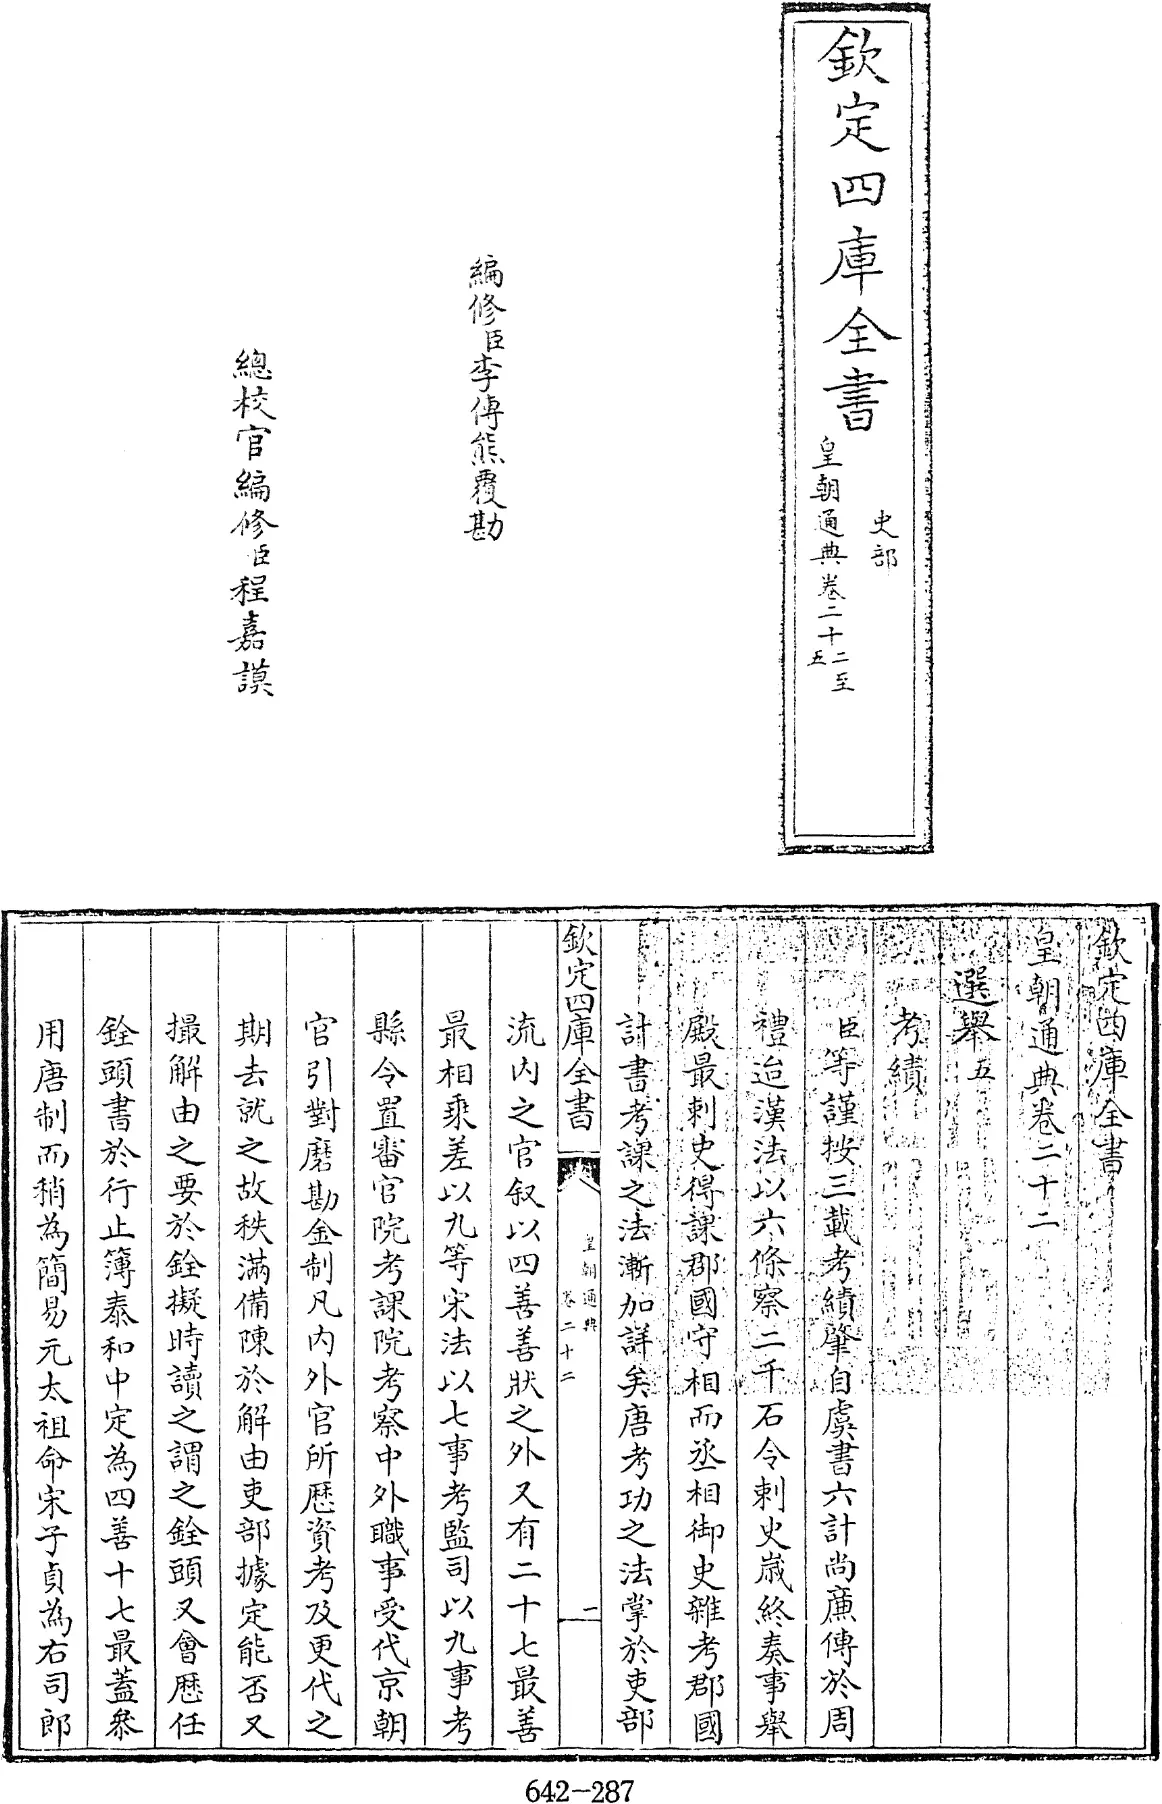 欽定四庫全書
史部
皇朝通典卷二十二至
五
編修臣李傳熊覆勘
總校官編修臣程嘉謨
欽定四庫全書
皇朝通典卷二十二
選舉五
考績
臣等謹按三載考績肇自虞書六計尚廉傳於周
禮迨漢法以六條察二千石令刺史歲終奏事舉
殿最刺史得課郡國守相而丞相御史雜考郡國
計書考課之法漸加詳矣唐考功之法掌於吏部
欽定四庫全書
皇朝通典
卷二十二
一
流内之官叙以四善善狀之外又有二十七最善
最相乘差以九等宋法以七事考監司以九事考
縣令置審官院考課院考察中外職事受代京朝
官引對磨勘金制凡内外官所歴資考及更代之
期去就之故秩滿備陳於解由吏部據定能否又
撮解由之要於銓擬時讀之謂之銓頭又會歴任
銓頭書於行止簿泰和中定為四善十七最蓋叅
用唐制而稍為簡易元太祖命宋子貞為右司郎
642-287